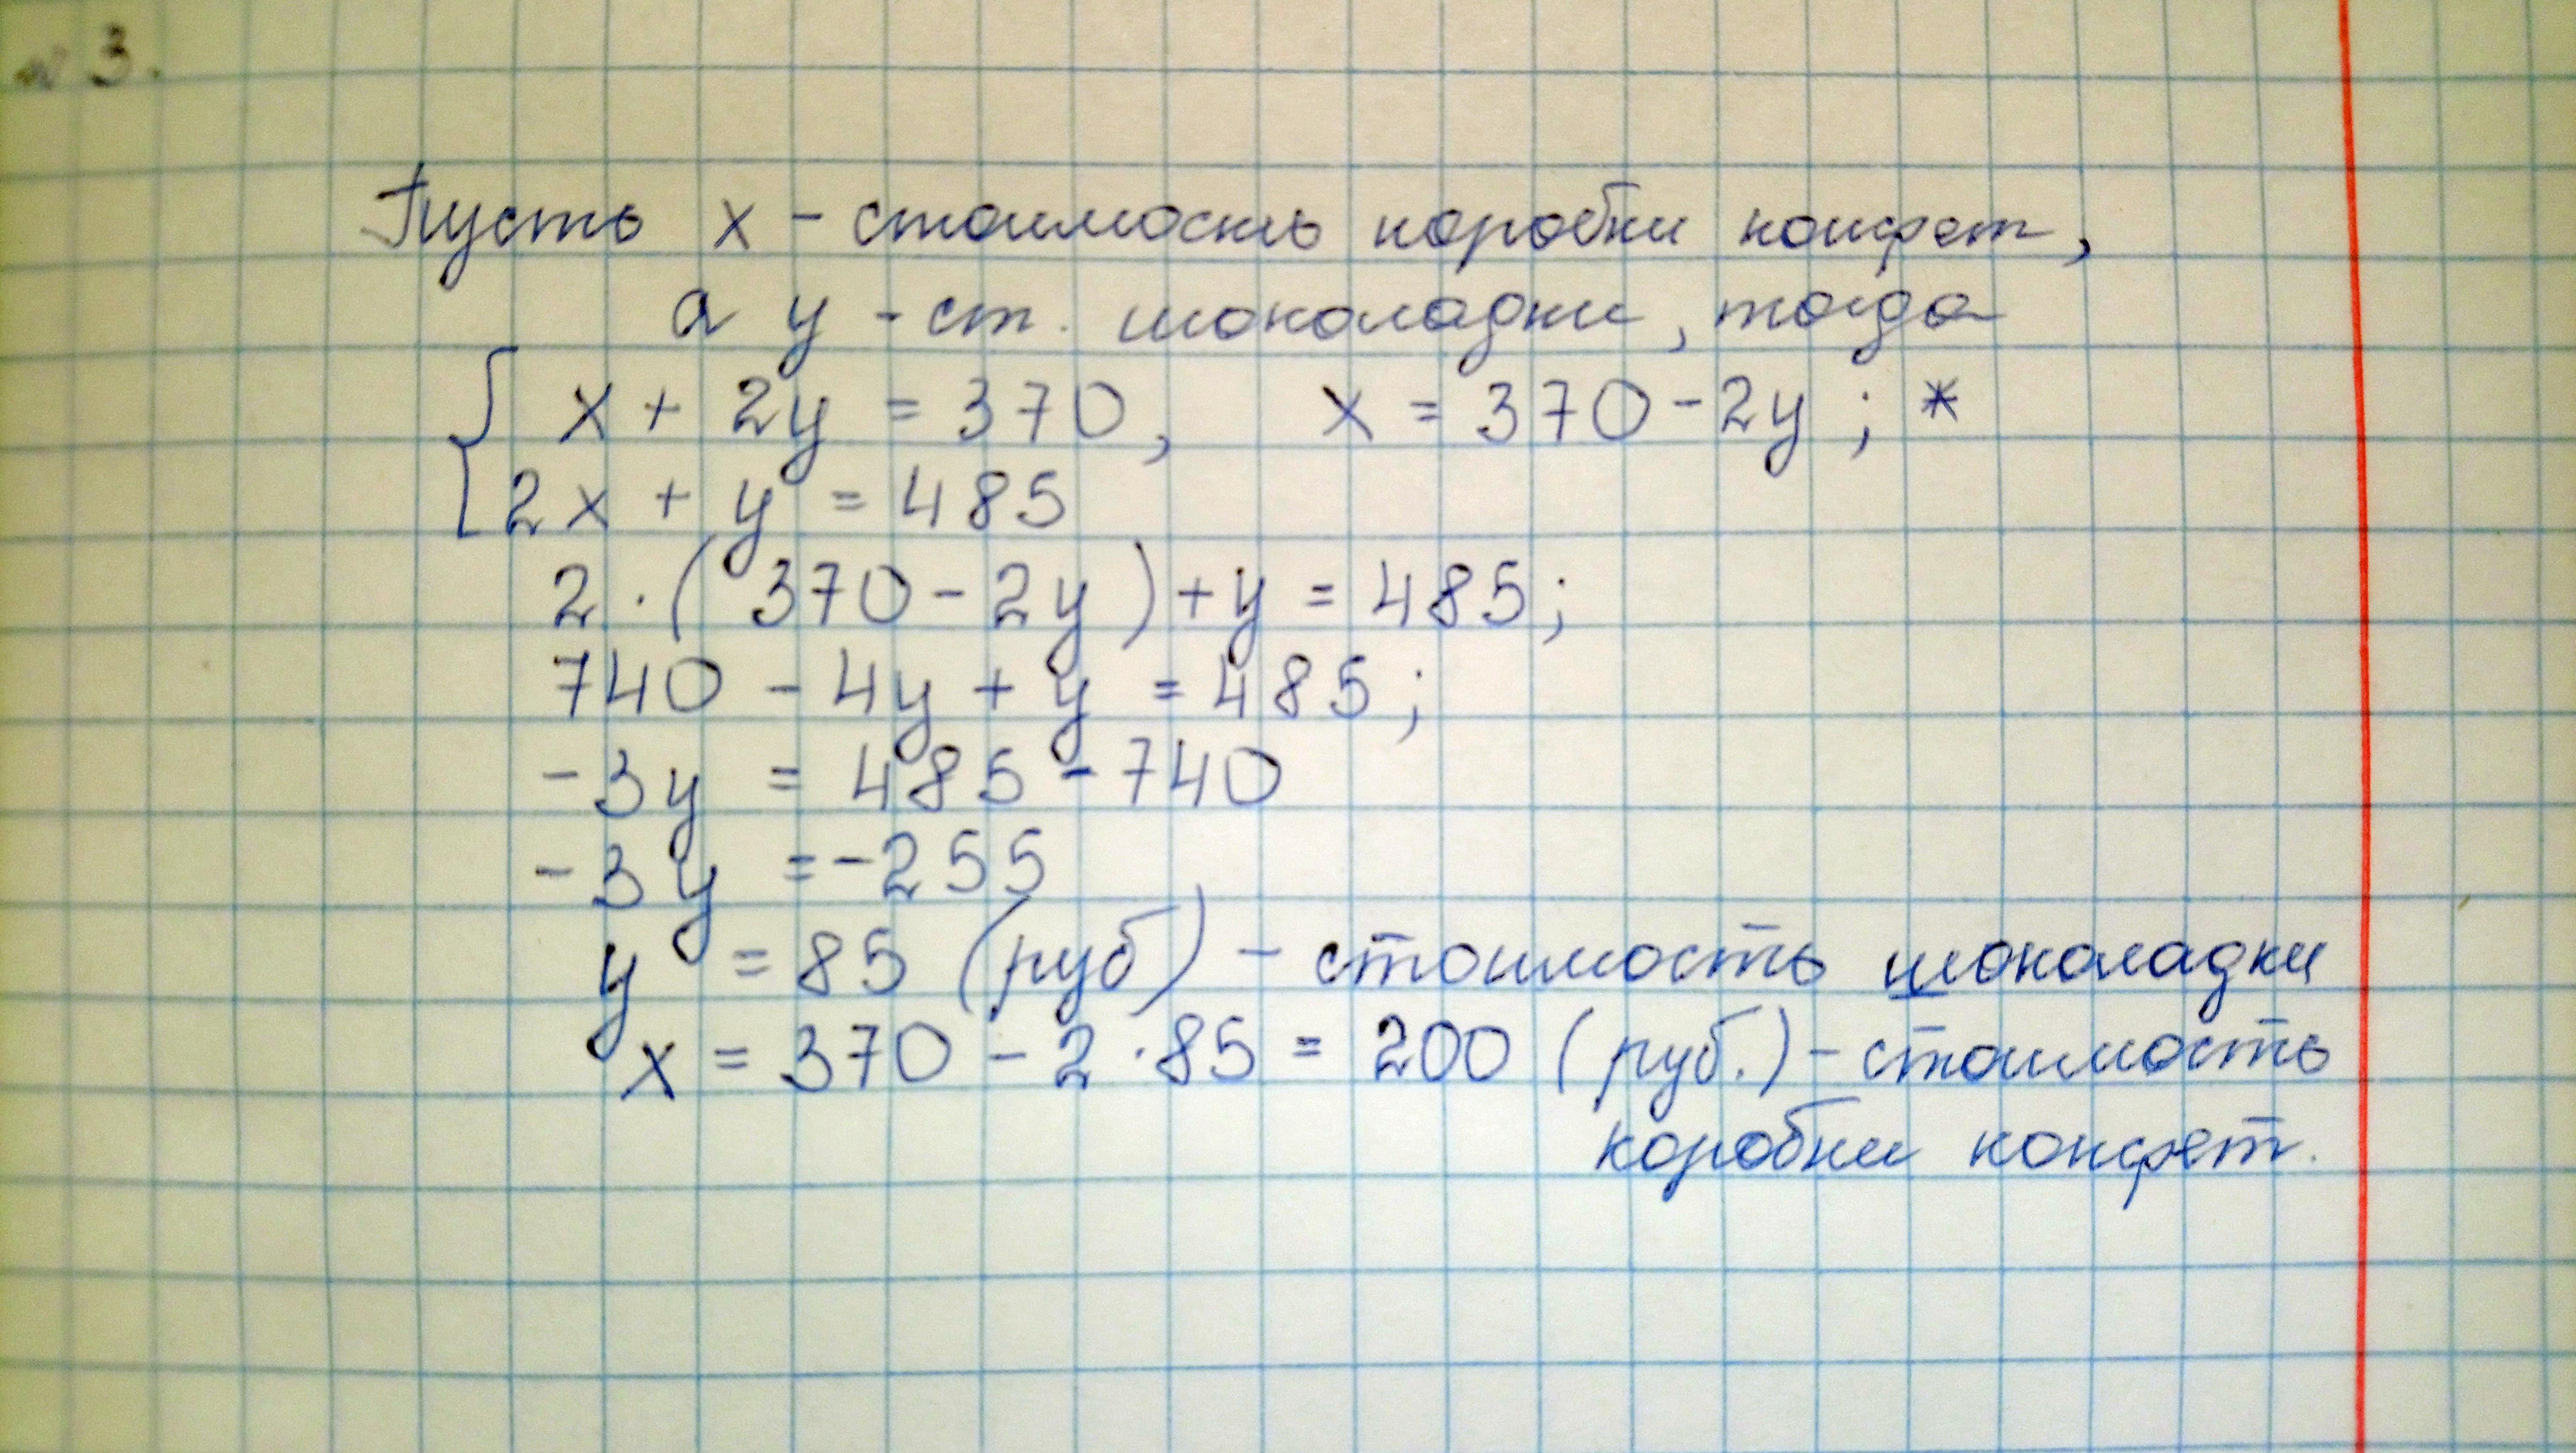 № 3.
Пусть x - стоимость коробки конфет,
а y - ст. шоколадки, тогда
{ x + 2y = 370, x = 370 - 2y ; *
2x + y = 485
2 · ( 370 - 2y ) + y = 485;
740 - 4y + y = 485;
-3y = 485 - 740
-3y = -255
y = 85 (руб) - стоимость шоколадки
x = 370 - 2 · 85 = 200 (руб.) - стоимость
коробки конфет.